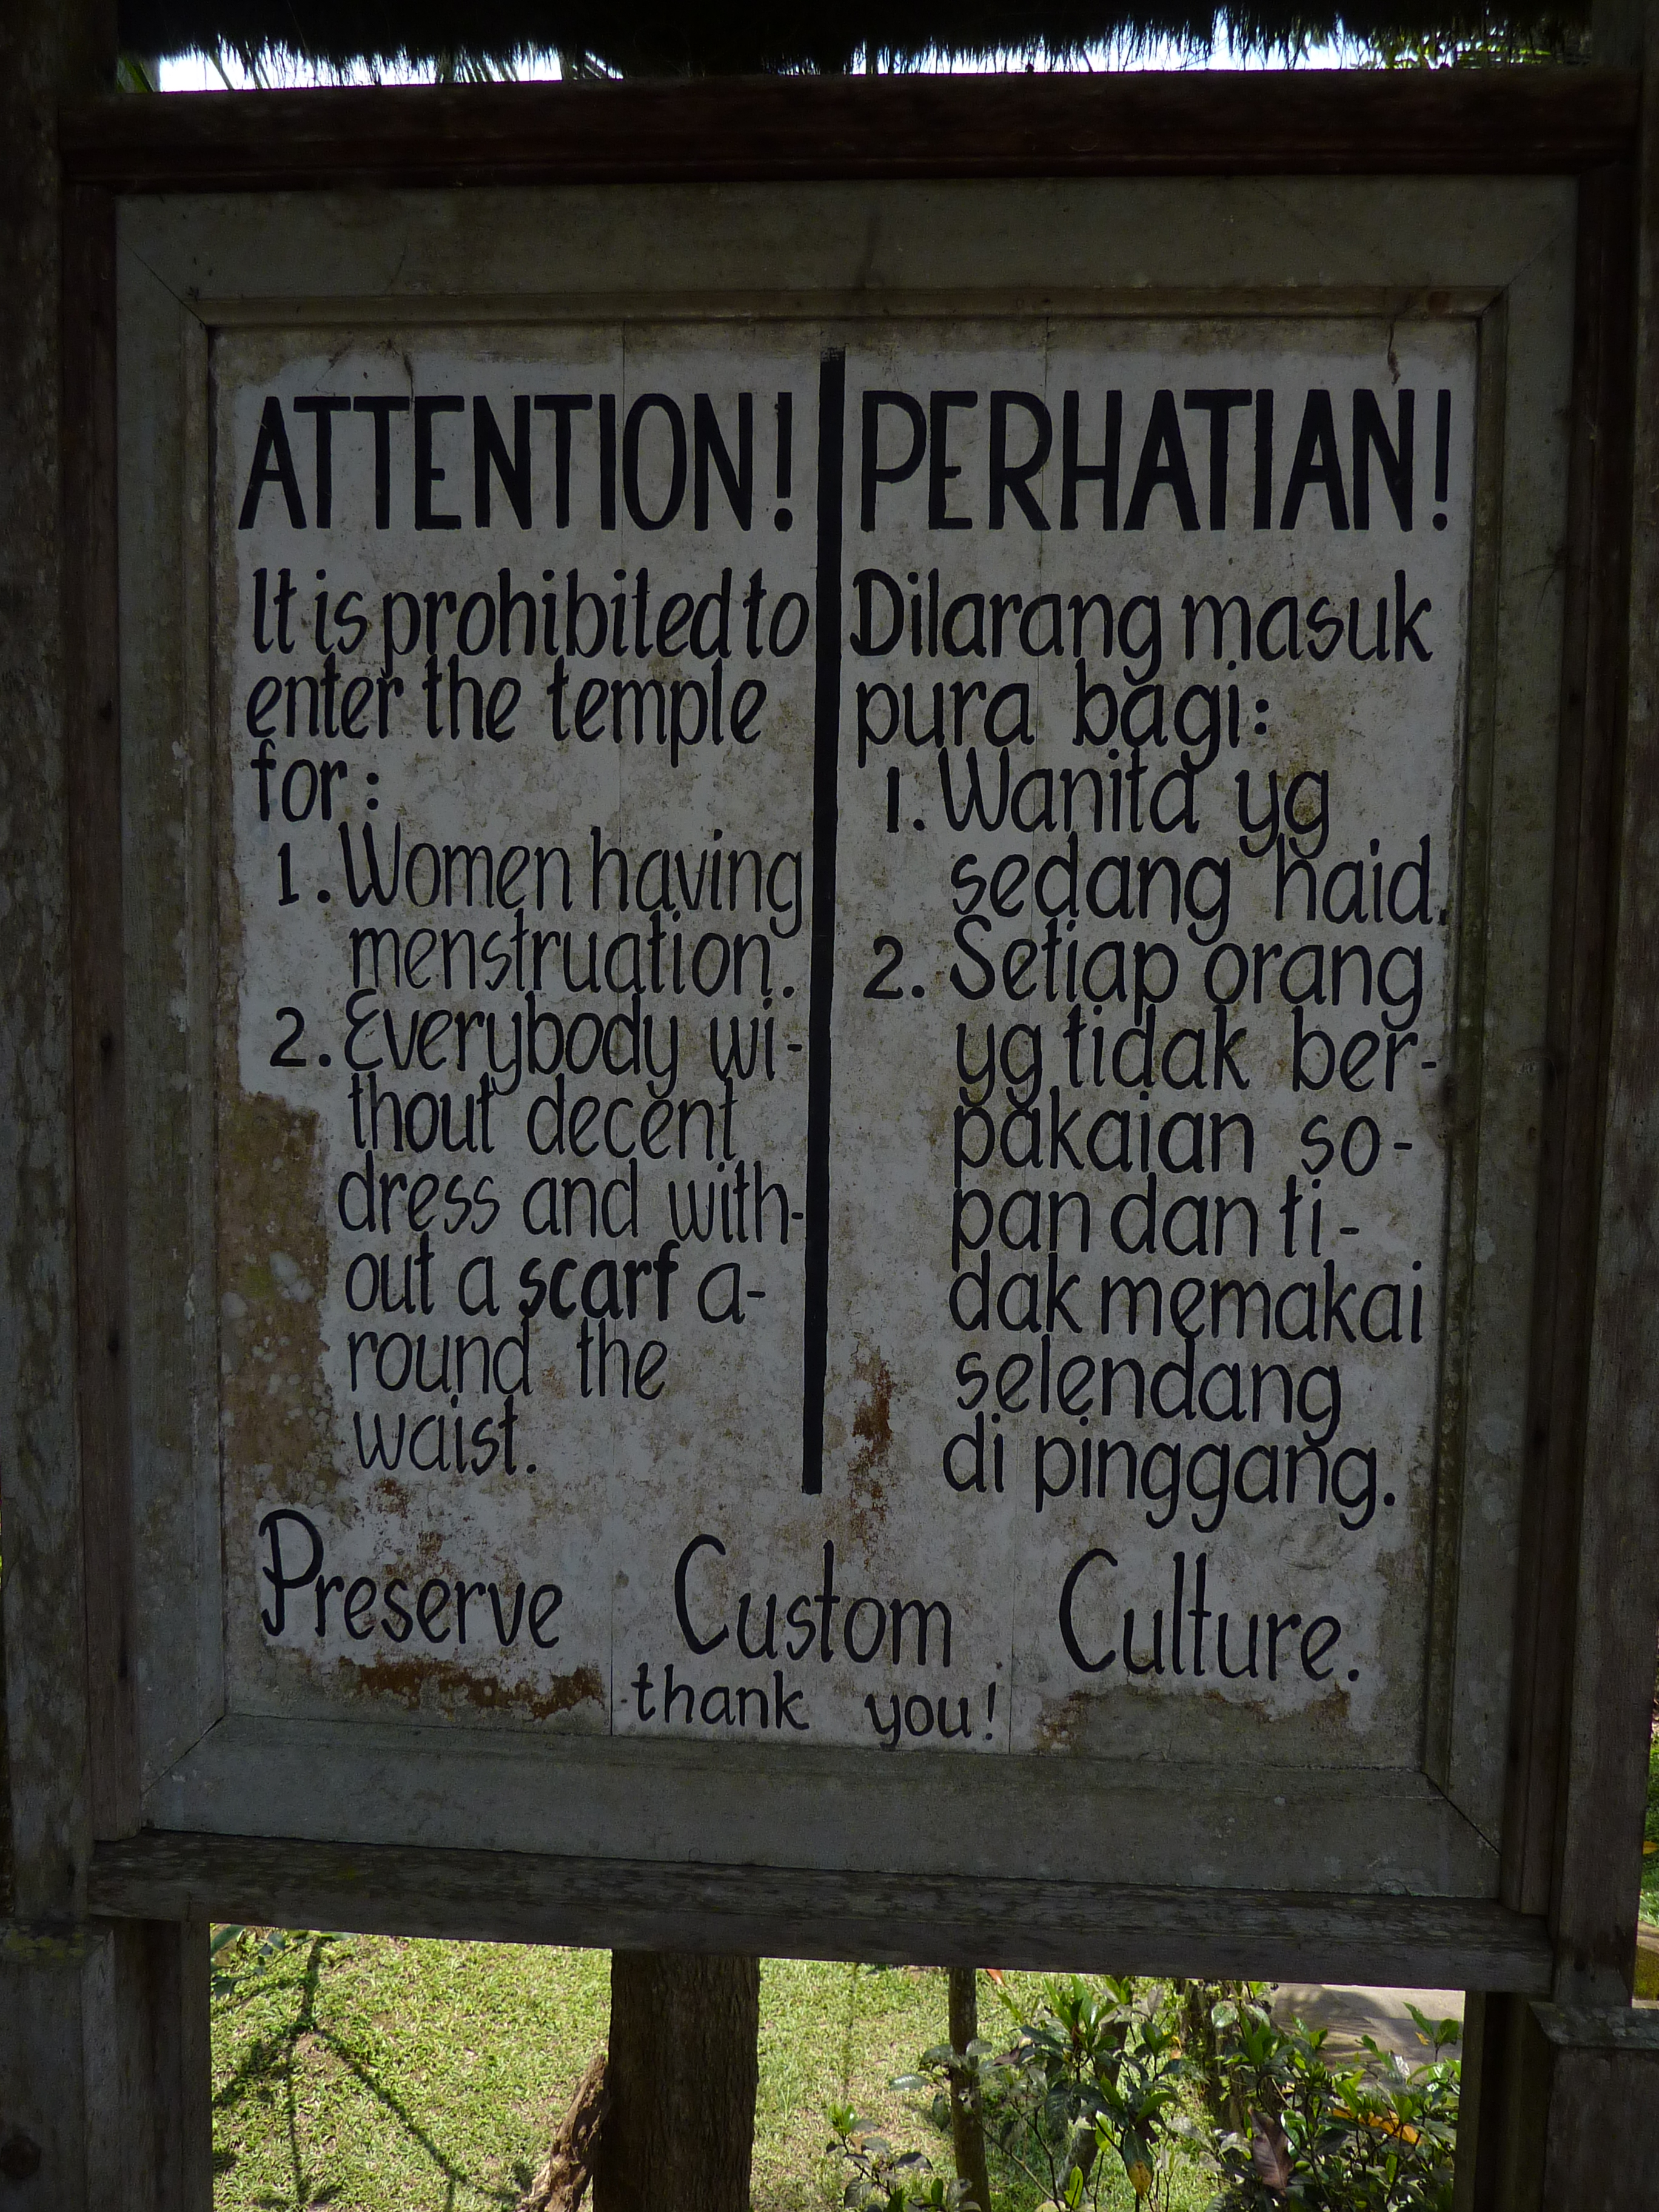 ATTENTION!
It is prohibited to
enter the temple
for:
1. Women having
menstruation.
2. Everybody wi-
thout decent
dress and with-
out a scarf a-
round the
waist.
PERHATIAN!
Dilarang masuk
pura bagi:
1. Wanita yg
sedang haid.
2. Setiap orang
yg tidak ber-
pakaian so-
pan dan ti-
dak memakai
selendang
di pinggang.
Preserve Custom Culture.
thank you!